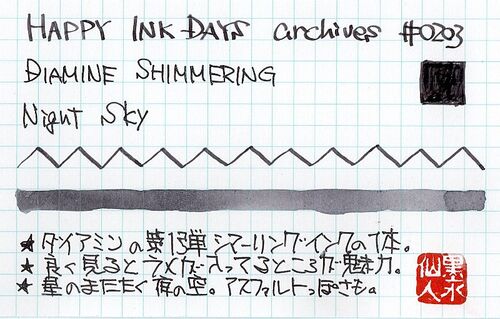 HAPPY INK DAYS archives #0203
DIAMINE SHIMMERING
Night Sky
★ ダイアミンの第1弾 シマーリングインクの1本。
★ 良く見るとラメが入ってるところが魅力。
★ 星のまたたく夜の空。アスファルトっぽさも。
墨水
仙人